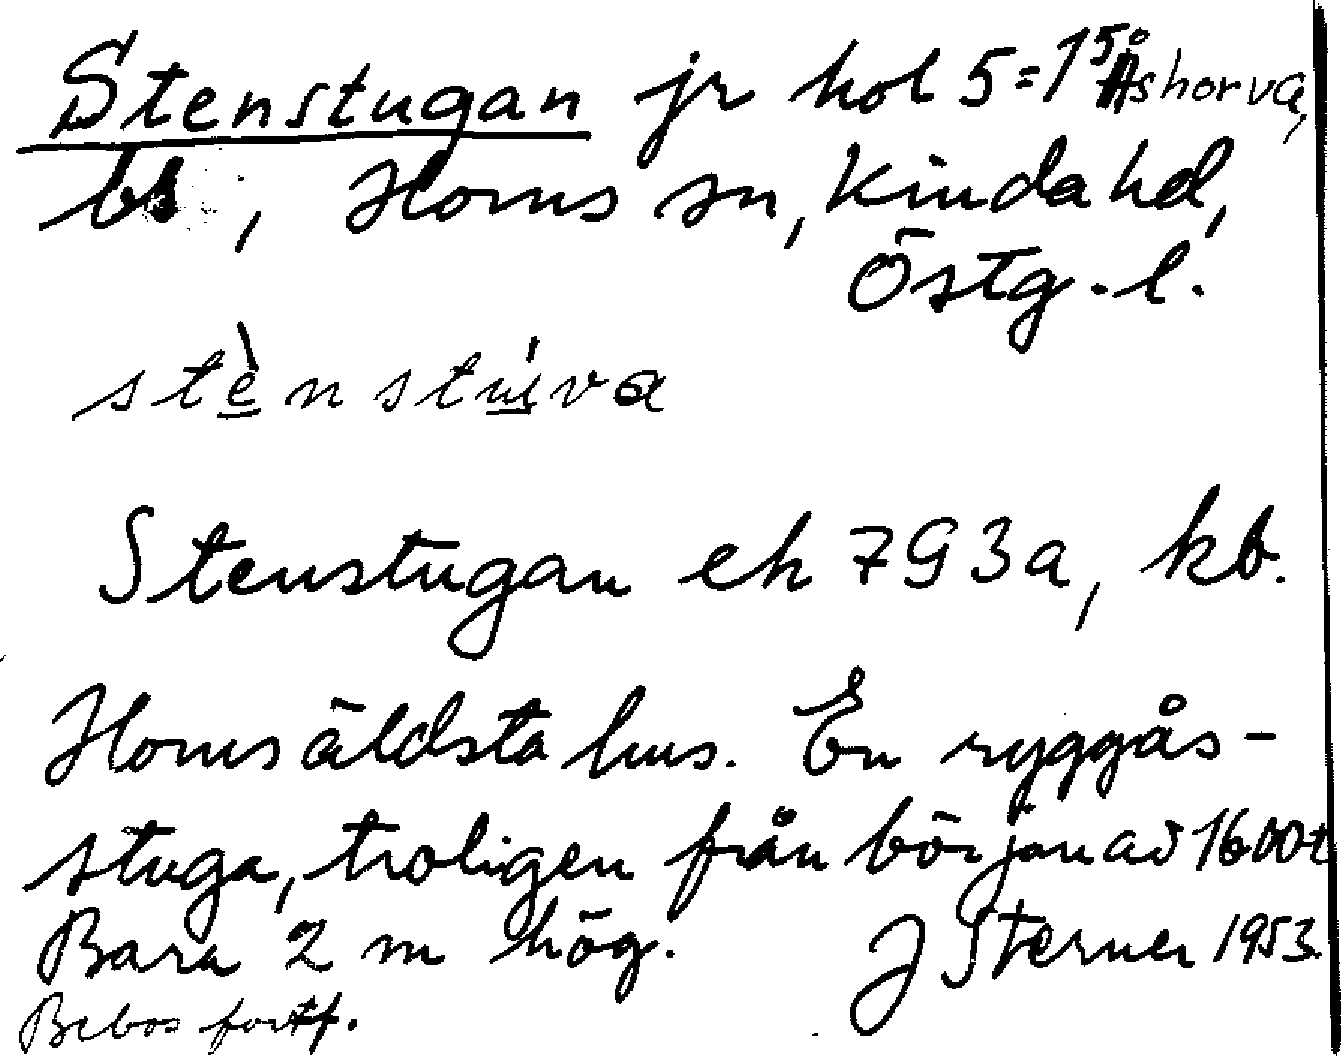 Stenstugan jr hol 5=1⁵ Åshorva,
bs, Horns sn, Kinda hd,
Östg.l.
stènstúva
Stenstugan ek 7G3a, kb.
Horns äldsta hus. En ryggås-
stuga, troligen från början av 1600t
Bara 2 m hög. J Sterner 1953.
Bebos fortf.